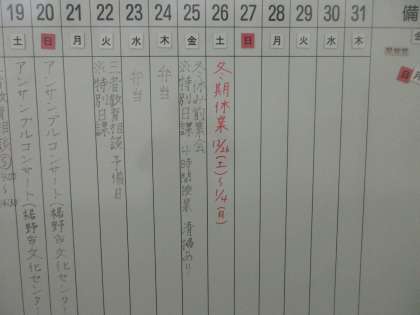 19 20 21 22 23 24 25 26 27 28 29 30 31
土 日 月 火 水 木 金 土 日 月 火 水 木
備
アンサンブルコンサート(裾野市文化センター
アンサンブルコンサート(裾野市文化センター
三者教育相談予備日
※特別日課
弁当
弁当
冬休み前集会
※特別日課 4時間授業 清掃あり
冬期休業 12/26(土)~1/4(月)